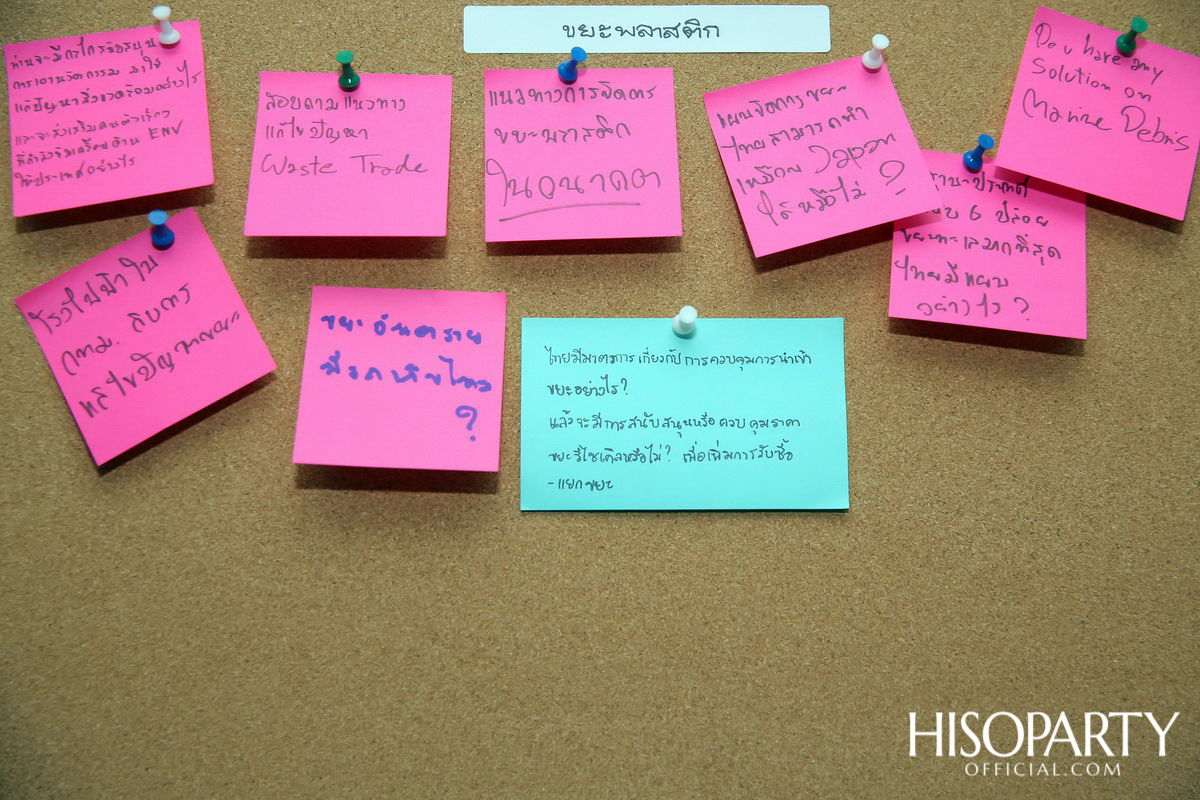 ขยะพลาสติก
ท่านจะมีกลไก
การเอานวัตกรรม มาใช้
แก้ปัญหาสิ่งแวดล้อมอย่างไร
และจะส่งเสริมคนตัวเล็กๆ
ด้าน ENV
ในประเทศอย่างไร
สอบถามแนวทาง
แก้ไขปัญหา
Waste Trade
แนวทางการจัดการ
ขยะพลาสติก
ในอนาคต
แผนจัดการขยะ
ไทยสามารถทำ
เหมือน Japan
ได้หรือไม่ ?
Do u have any
Solution on
Marine Debris
6 ปล่อย
ขยะทะเลมากที่สุด
ไทยมีแผน
อย่างไร ?
โรงไฟฟ้าใน
กทม. กับการ
แก้ไขปัญหาขยะ
ขยะอันตราย
?
ไทยมีมาตรการเกี่ยวกับการควบคุมการนำเข้า
ขยะอย่างไร?
แล้วจะมีการสนับสนุนหรือควบคุมราคา
ขยะรีไซเคิลหรือไม่? เพื่อเพิ่มการรับซื้อ
-แยกขยะ
HISOPARTY
OFFICIAL.COM